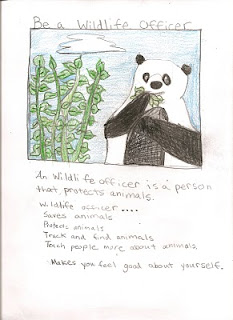 Be a Wildlife Officer
An Wildlife officer is a person
that protects animals.
Wildlife officer ....
Saves animals
Protects animals
Track and find animals
Teach people more about animals.
Makes you feel good about yourself.